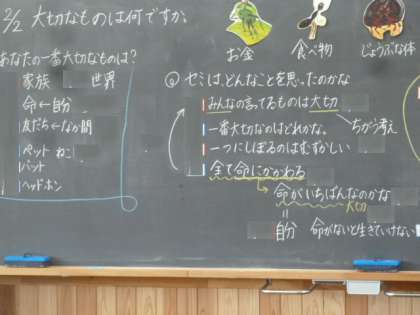 2/2 大切なものは何ですか。
あなたの一番大切なものは?
家族 世界
命←自分
友だち←なか間
ペット ねこ
バット
ヘッドホン
お金
食べ物
じょうぶな体
Q セミは、どんなことを思ったのかな
みんなの言ってるものは大切
ちがう考え
一番大切なのはどれかな。
一つにしぼるのはむずかしい
全て命にかかわる
命がいちばんなのかな
大切
=
自分 命がないと生きていけない